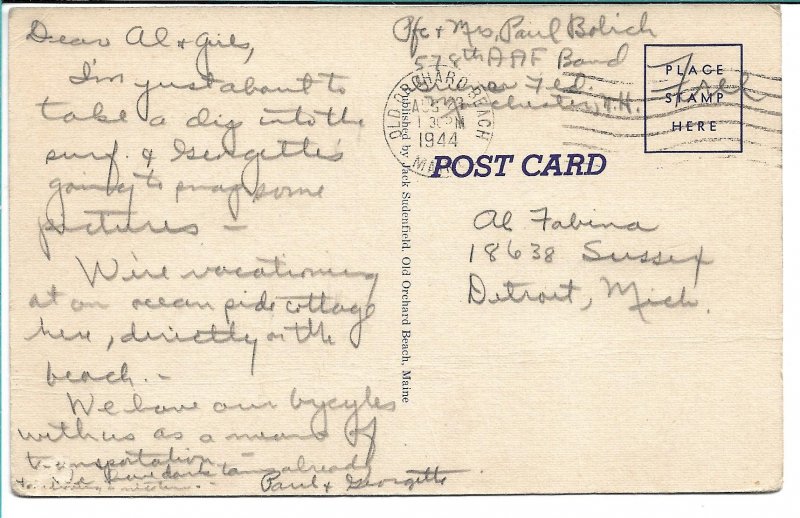 Dear Al & Girls,
I'm just about to
take a dip into the
surf. & Georgette's
going to snap some
pictures —
We're vacationing
at an ocean side cottage
here, directly on the
beach. -
We have our bycycles
with us as a means of
transportation —
We have dark tans already
Paul & Georgette
Pfc & Mrs, Paul Bolich
578th AAF Band
Fld.
Manchester, N.H.
Free
PLACE
STAMP
HERE
OLD ORCHARD BEACH
1944
POST CARD
Published by Jack Sudenfield, Old Orchard Beach, Maine
Al Fabina
18638 Sussex
Detroit, Mich.